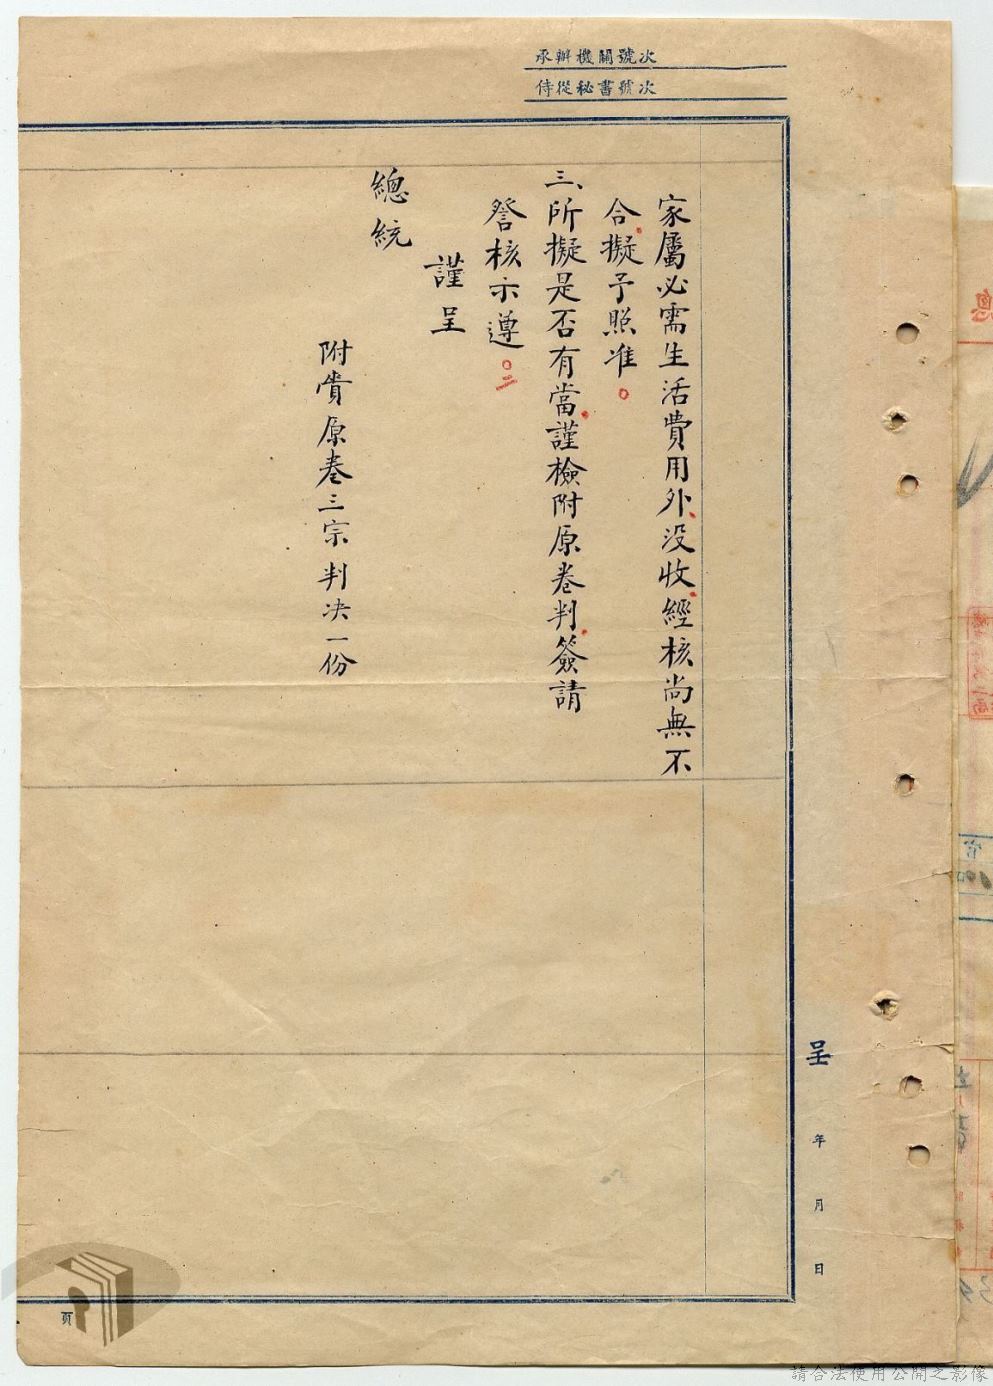 承辦機關號次
侍從秘書號次
家屬必需生活費用外没收經核尚無不
合擬予照准。
三、所擬是否有當謹檢附原卷判簽請
詧核示遵。
謹呈
總統
附賷原卷三宗判决一份
呈
年 月 日
頁
請合法使用公開之影像